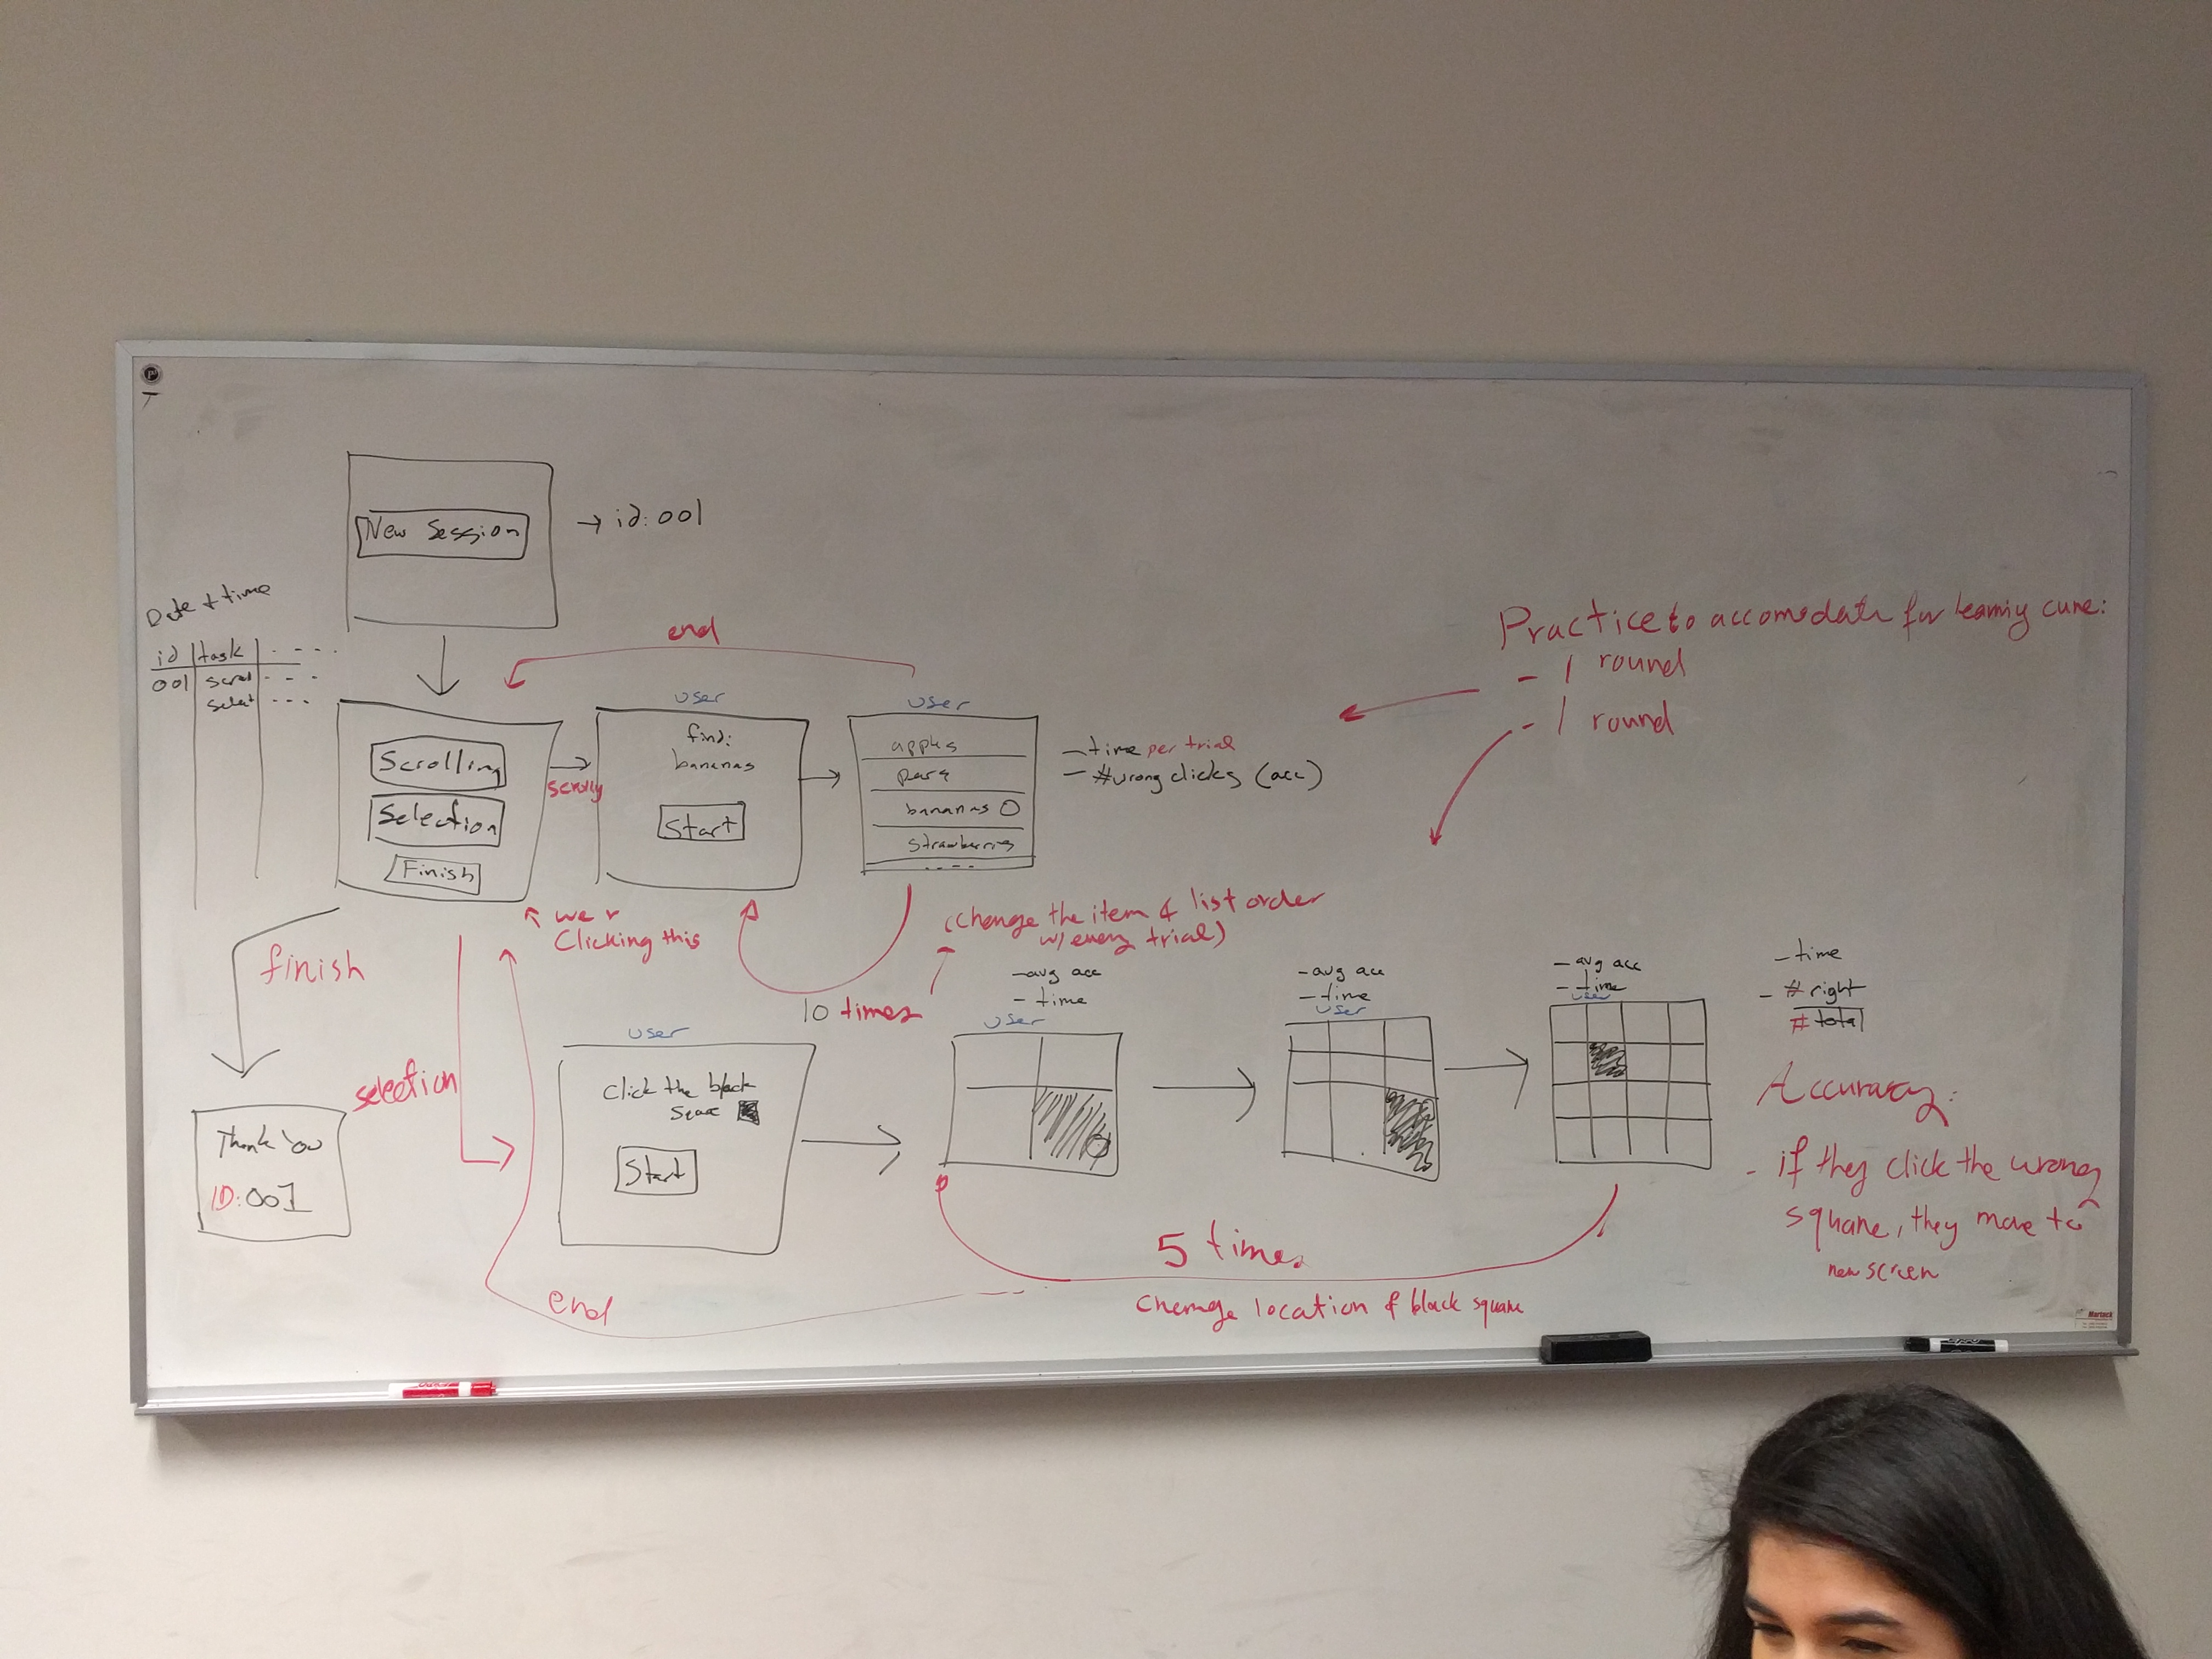 New Session
→ id:001
Date & time
id | task | - - - -
001 | scrol - - -
select - - -
end
Scrolling
Selection
Finish
scrolly
user
find:
bananas
Start
user
apples
pars
bananas
strawberries
- - - -
- time per trial
- #wrong clicks (acc)
Practice to accomodate for learning curve:
- 1 round
- 1 round
we r
Clicking this
10 times
(change the item & list order
w/ every trial)
finish
Thank You
ID:001
selection
user
Click the black
Start
-avg acc
- time
user
-avg acc
- time
user
- avg acc
- time
user
- time
- # right
# total
Accuracy:
- if they click the wrong
square, they move to
new screen
5 times
Change location of black square
end
Martack